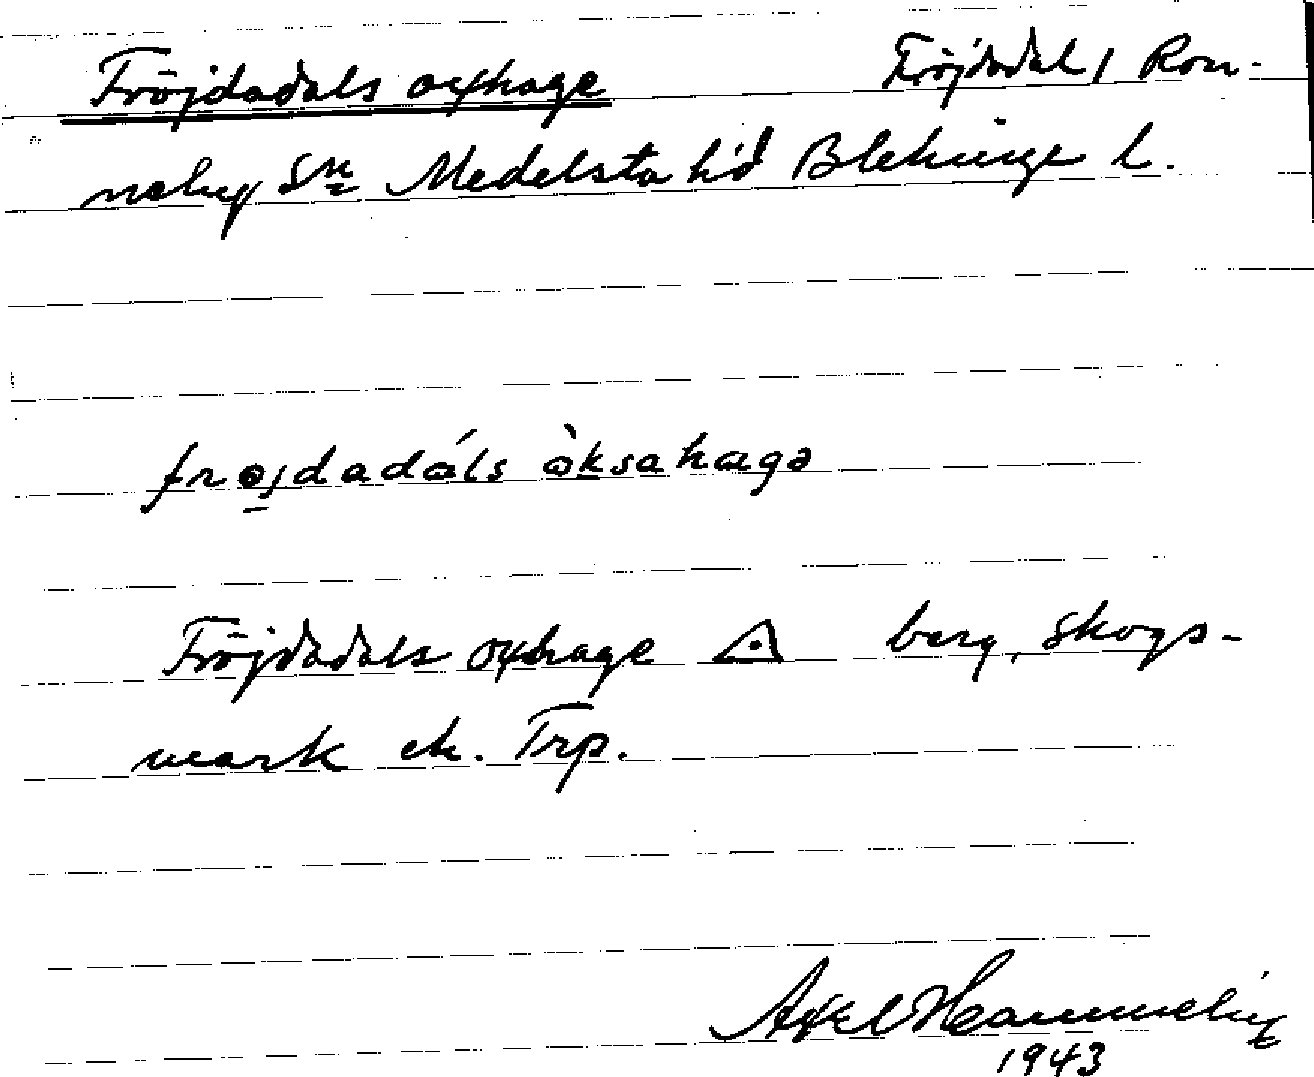 Fröjdadals oxhage Fröjdadal, Ron-
neby Sn Medelsta hd Blekinge l.
frøjdadáls òksahagə
Fröjdadals oxhage berg, skogs-
mark ek. Trp.
Axel Hammelin
1943